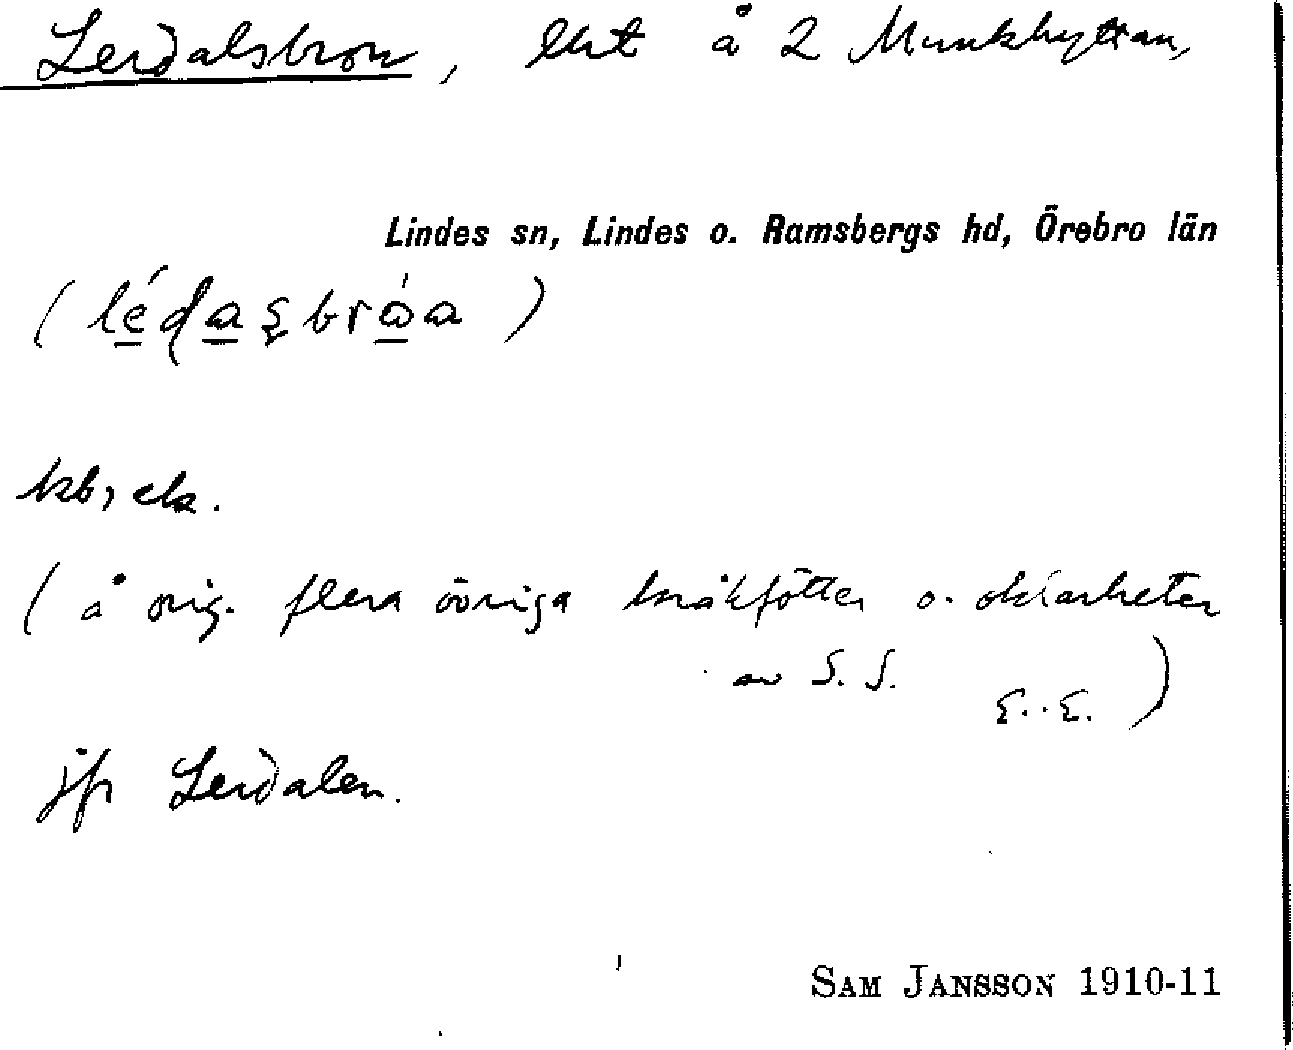 Lerdalsbron, lht å 2 Munkhyttan,
Lindes sn, Lindes o. Ramsbergs hd, Örebro län
jfr Lerdalen.
(å orig. flera övriga kråkfötter o. oklarheter
av S. J.
E. E.)
SAM JANSSON 1910-11